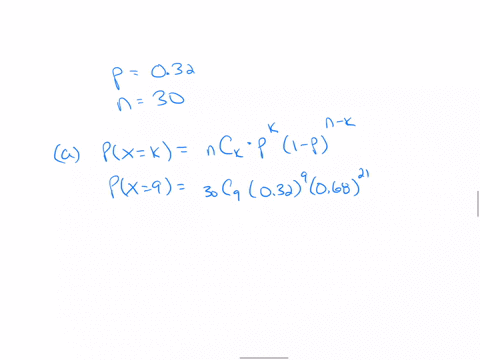 p = 0.32
n = 30
(a) P(X=K) = nCk · p^K (1-p)^n-K
P(X=9) = 30C9 (0.32)^9 (0.68)^21